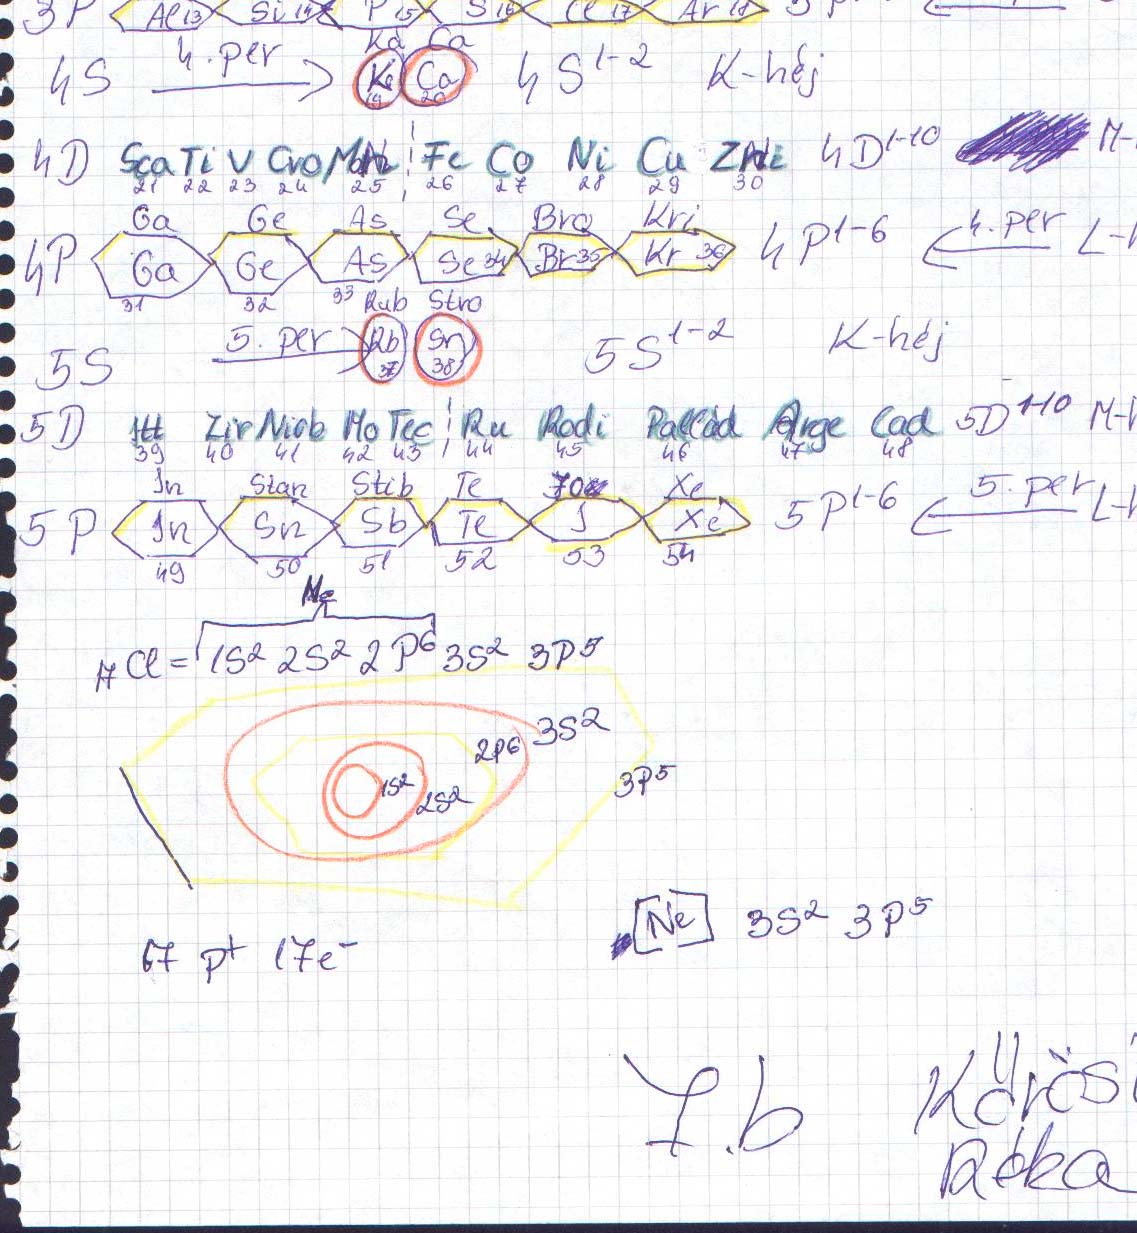 3P Al13 Si14 P15 S16 Cl17 Ar18 3P
Ka Ca
4S 4. per K 19 Ca 20 4S1-2 K-héj
4D Sca Ti V Cro Fe Co Ni Cu 4D1-10 M-
21 22 23 24 25 26 27 28 29 30
Ga Ge As Se Bro Kri
4P Ga Ge As Se34 Br35 Kr36 4P1-6 4. per L-
31 32 33 Rub Stro
5S 5. per Rb 37 Sr 38 5S1-2 K-héj
5D Zir Niob Mo Tec Ru Rodi Pallad Arge Cad 5D1-10 M-
39 40 41 42 43 44 45 46 47 48
In Stan Stib Te Xe
5P In Sn Sb Te J Xe 5P1-6 5. per L-
49 50 51 52 53 54
Ne
17 Cl = 1S2 2S2 2P6 3S2 3P5
3S2
2P6
3P5
1S2
2S2
Ne 3S2 3P5
17 p+ 17e-
7.b Kőrösi
Réka